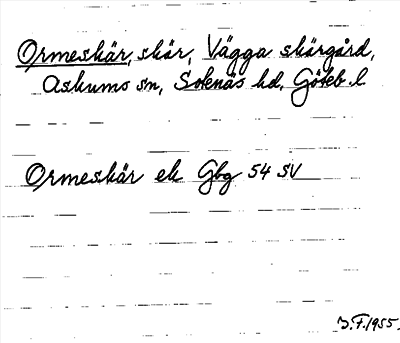 Ormeskär, skär, Vägga skärgård,
Askums sn, Sotenäs hd, Göteb. l
Ormeskär ek Gbg 54 SV
J.F. 1955.